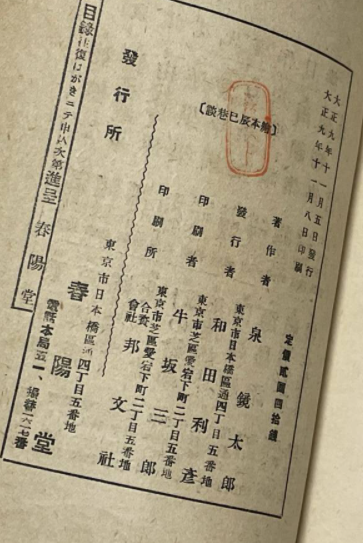 大正九年十一月五日發行
大正九年十一月八日印刷
定價貳圓四拾錢
〔繪本辰巳巷談〕
著作者 泉鏡太郎
東京市日本橋區通四丁目五番地
發行者 和田利彥
東京市芝區愛宕下町二丁目五番地
印刷者 牛坂三郎
東京市芝區愛宕下町二丁目五番地
印刷所 合資會社 邦文社
發行所
東京市日本橋區通四丁目五番地
春陽堂
電話本局五一、振替一六一七番
目錄往復はがきニテ申込次第進呈 春陽堂